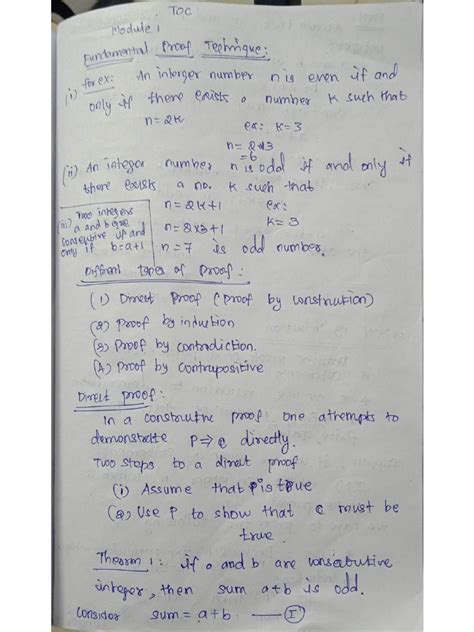 TOC
Module 1
Fundamental Proof Technique:
(i) for ex: An interger number n is even if and
only if there exists a number k such that
n=2k ex: k=3
n=2*3
=6
(ii) An integer number n is odd if and only if
there exists a no. k such that
n=2k+1 ex:
n=2*3+1 k=3
n=7 is odd number.
(iii) Two integers
a and b are
consecutive if and
only if b=a+1
Different types of Proof:
(1) Direct Proof (Proof by construction)
(2) Proof by induction
(3) Proof by contradiction.
(4) Proof by Contrapositive
Direct proof:
In a construtive proof one attempts to
demonstrate P⇒Q directly.
Two steps to a direct proof
(i) Assume that P is true
(2) Use P to show that Q must be
true.
Theorm 1: if a and b are consecutive
integer, then sum a+b is odd.
Consider sum = a+b —(I)